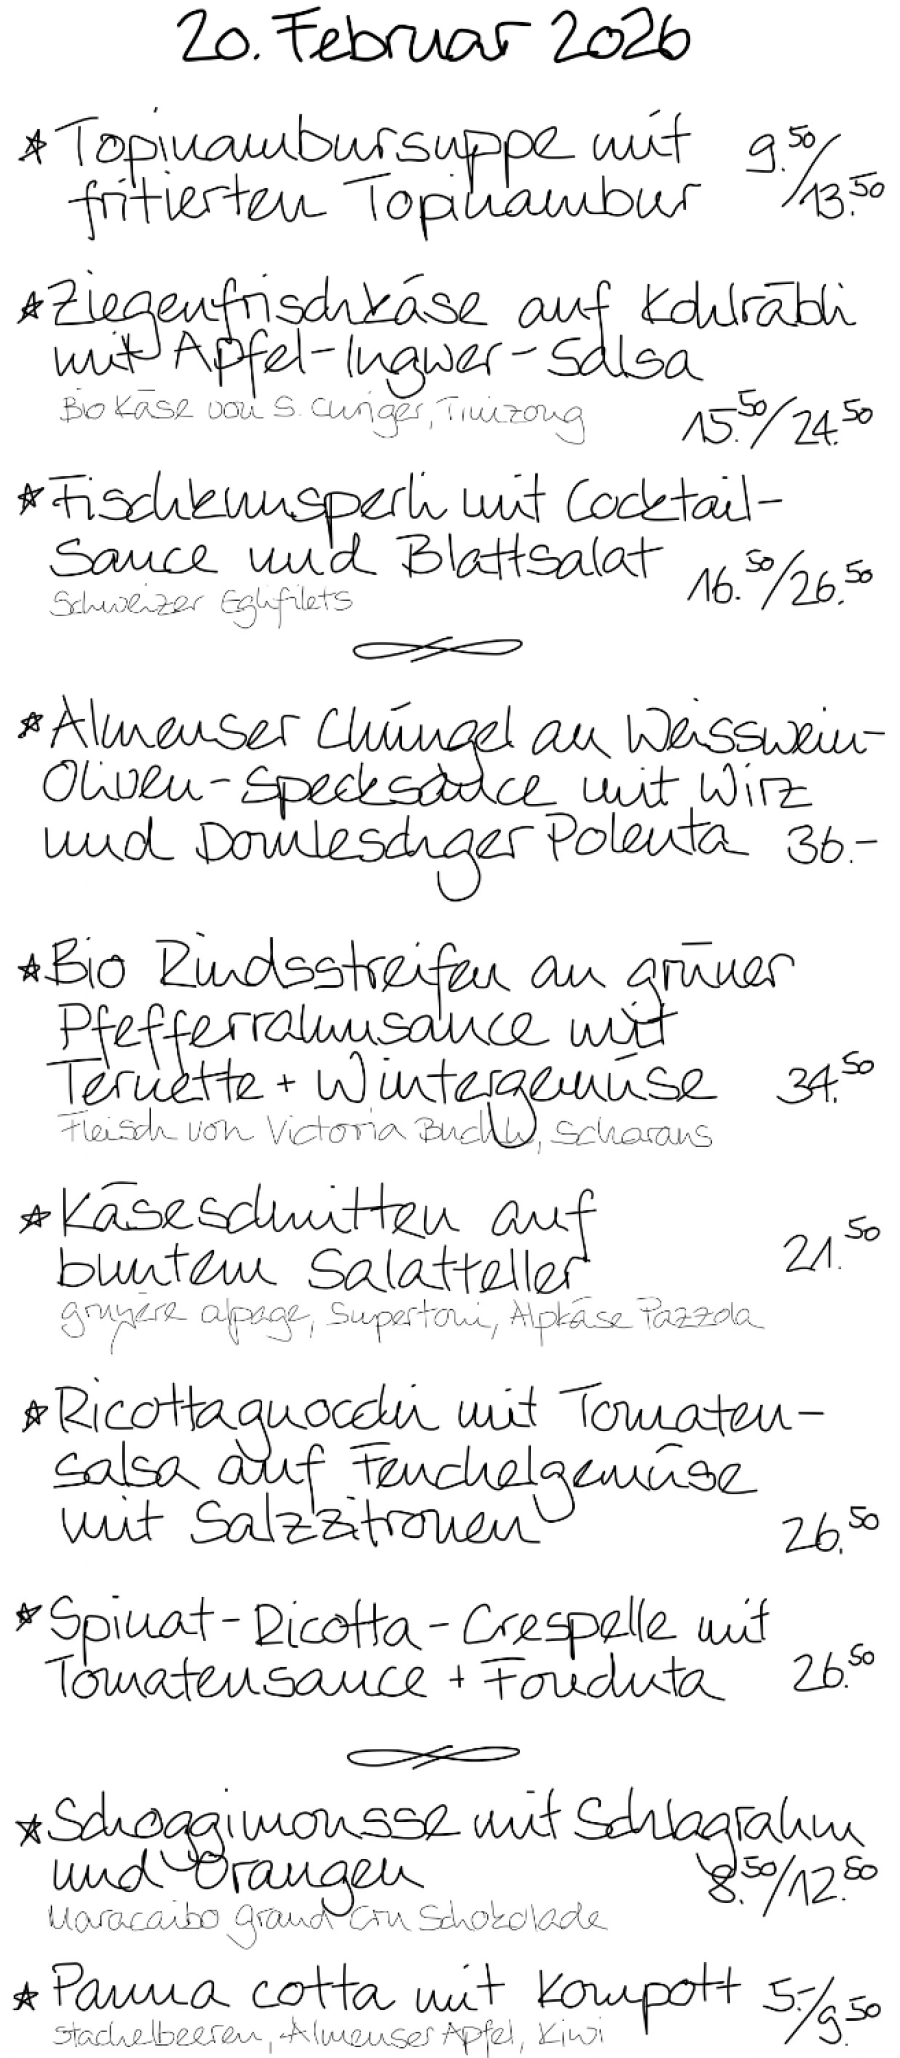 20. Februar 2026
* Topinambursuppe mit 9.50/
fritierten Topinambur 13.50
* Ziegenfrischkäse auf Kohlräbli
mit Apfel-Ingwer-Salsa
Bio Käse von S. Clunger, Tinizong
15.50/24.50
* Fischknusperli mit Cocktail-
Sauce und Blattsalat 16.50/26.50
Schweizer Eglifilets
* Almenser Chüngel an Weisswein-
Oliven-Specksauce mit Wirz
und Domleschger Polenta 36.-
* Bio Rindsstreifen an grüner
Pfefferrahmsauce mit
Ternette + Wintergemüse 34.50
Fleisch von Victoria Buchli, Scharans
* Käseschnitten auf
buntem Salatteller 21.50
gruyère alpage, Supertoni, Alpkäse Pazzola
* Ricottagnocchi mit Tomaten-
salsa auf Fenchelgemüse
mit Salzzitronen 26.50
* Spinat-Ricotta-Crespelle mit
Tomatensauce + Fonduta 26.50
* Schoggimousse mit Schlagrahm
und Orangen 8.50/12.50
Maracaibo grand Cru Schokolade
* Panna cotta mit Kompott 5.-/9.50
Stachelbeeren, Almenser Apfel, Kiwi